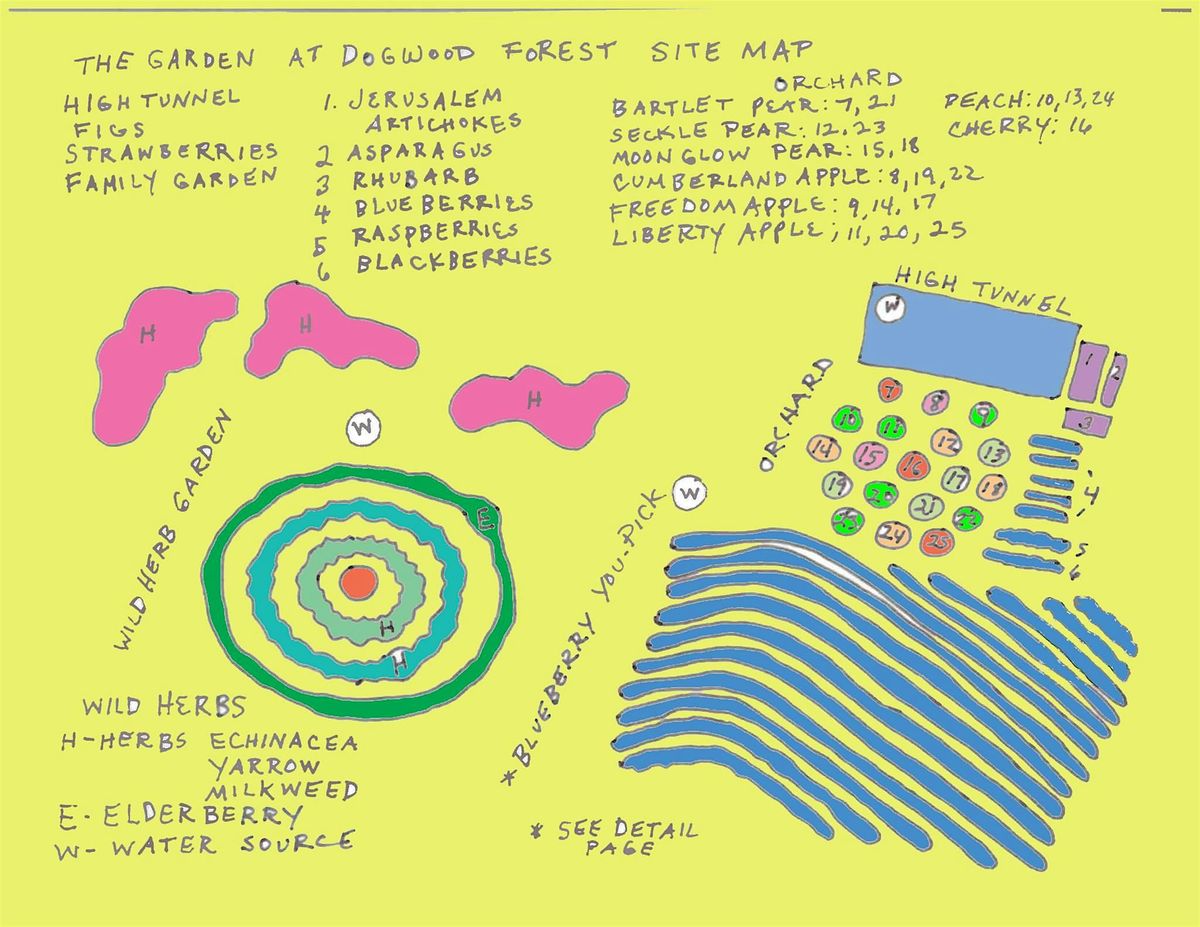 THE GARDEN AT DOGWOOD FOREST SITE MAP
HIGH TUNNEL
FIGS
STRAWBERRIES
FAMILY GARDEN
1. JERUSALEM
ARTICHOKES
2 ASPARAGUS
3 RHUBARB
4 BLUEBERRIES
5 RASPBERRIES
6 BLACKBERRIES
ORCHARD
BARTLET PEAR: 7, 21
SECKLE PEAR: 12, 23
MOONGLOW PEAR: 15, 18
CUMBERLAND APPLE: 8, 19, 22
FREEDOM APPLE: 9, 14, 17
LIBERTY APPLE; 11, 20, 25
PEACH: 10, 13, 24
CHERRY: 16
H
H
H
W
WILD HERB GARDEN
E
H
H
HIGH TUNNEL
W
1
2
3
ORCHARD
7
8
9
10
11
12
13
14
15
16
17
18
19
20
21
22
23
24
25
4
5
6
W
* BLUEBERRY YOU-PICK
WILD HERBS
H-HERBS ECHINACEA
YARROW
MILKWEED
E- ELDERBERRY
W- WATER SOURCE
* SEE DETAIL
PAGE